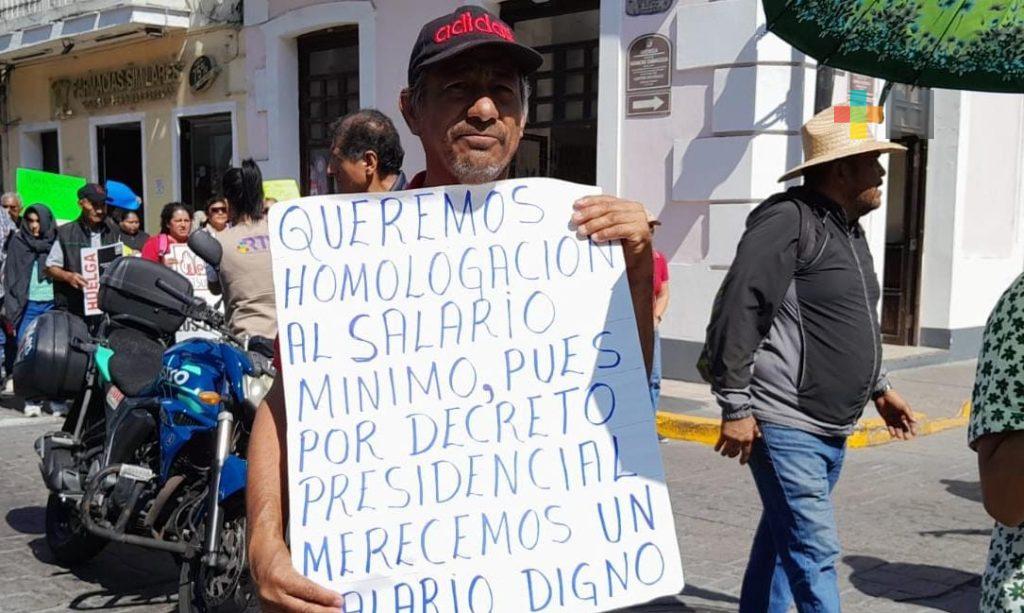 FARMACIAS SIMILARES
adidas
RTV
HUELGA
QUEREMOS
HOMOLOGACIÓN
AL SALARIO
MINIMO, PUES
POR DECRETO
PRESIDENCIAL
MERECEMOS UN
SALARIO DIGNO